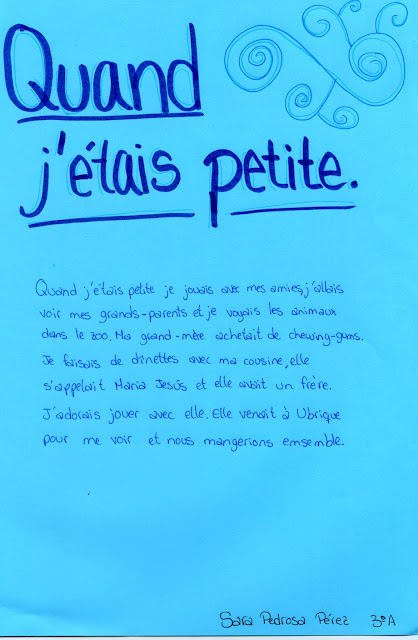 Quand
j'étais petite.
Quand j'étais petite je jouais avec mes amies, j'allais
voir mes grands-parents et je voyais les animaux
dans le zoo. Ma grand-mère achetait de chewing-gums.
Je faisais de dinettes avec ma cousine, elle
s'appelait Maria Jesús et elle avait un frère.
J'adorais jouer avec elle. Elle venait à Ubrique
pour me voir et nous mangerions emsemble.
Sara Pedrosa Pérez 3ºA